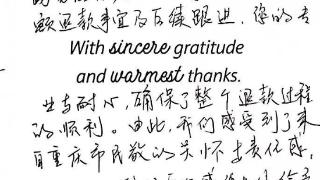 额退款事宜及后续跟进。您的专
With sincere gratitude
and warmest thanks.
业与耐心,确保了整个退款过程
的顺利。由此,我们感受到了来
自重庆市民政的关怀与责任感。